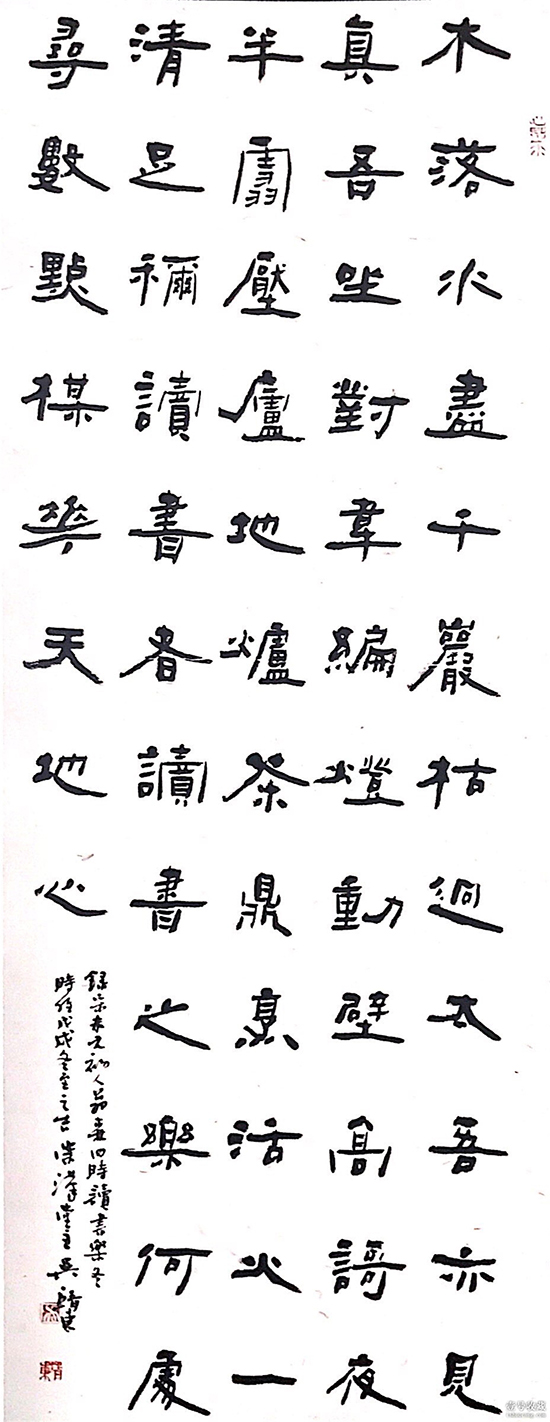 木落水盡千巖枯迥太吾亦見
真吾坐對韋編燈動壁高謌夜
半雪壓廬地爐茶鼎烹活火一
清足禰讀書者讀書之樂何處
尋數點楳華天地心
錄宋末元初人翁森四時讀書樂冬
時值戊戌冬至之吉漢堂主吳